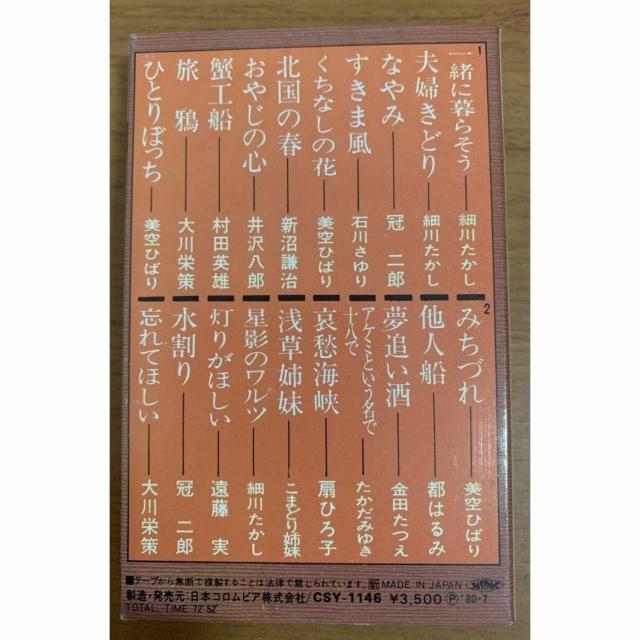 1
一緒に暮らそう――細川たかし
夫婦きどり――細川たかし
なやみ――冠 二郎
すきま風――石川さゆり
くちなしの花――美空ひばり
北国の春――新沼謙治
おやじの心――井沢八郎
蟹工船――村田英雄
旅 鴉――大川栄策
ひとりぼっち――美空ひばり
2
みちづれ――美空ひばり
他人船――都はるみ
夢追い酒――金田たつえ
アケミという名で
十八で――たかだみゆき
哀愁海峡――扇ひろ子
浅草姉妹――こまどり姉妹
星影のワルツ――細川たかし
灯りがほしい――遠藤 実
水割り――冠 二郎
忘れてほしい――大川栄策
■テープから無断で複製することは法律で禁じられています。 MADE IN JAPAN
製造・発売元:日本コロムビア株式会社/CSY-1146 ¥3,500 Ⓟ'80・7
TOTAL TIME 72'52"